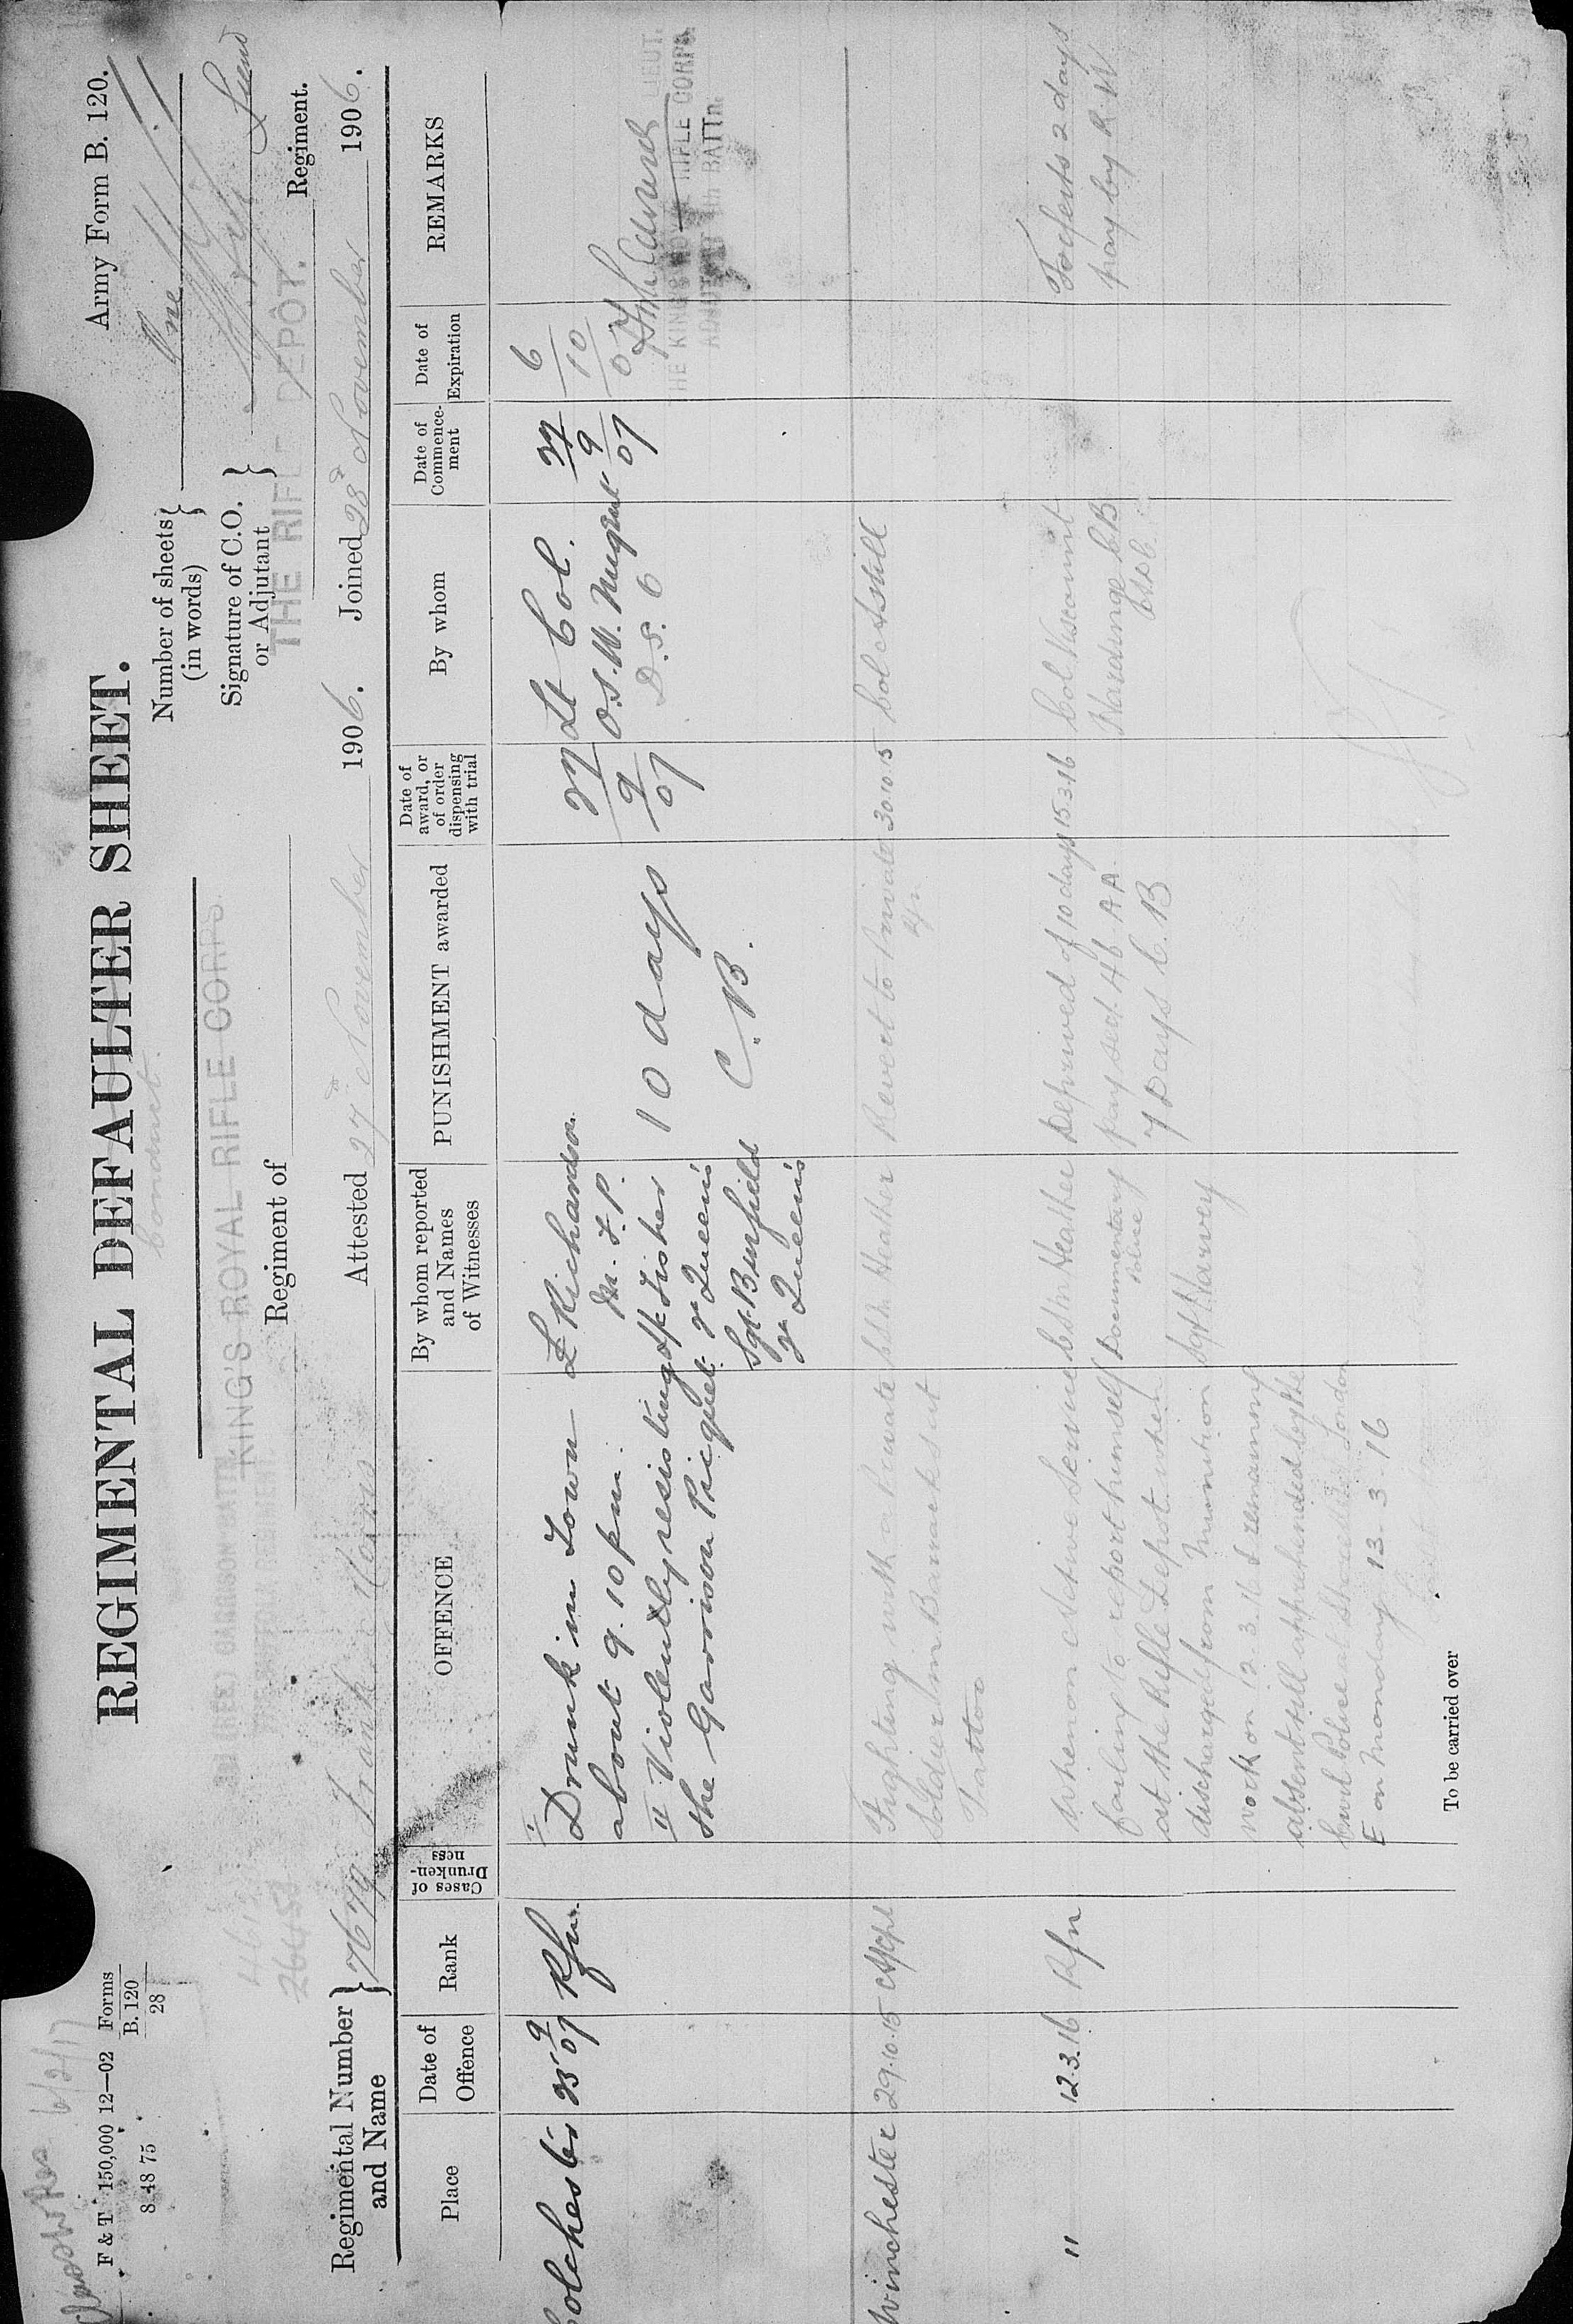 Army Form B. 120.
F & T 150,000 12—02 Forms
B. 120
28
8 48 75
6/2/17
REGIMENTAL DEFAULTER SHEET.
Conduct
Number of sheets (in words) } One
Signature of C.O. or Adjutant }
KING'S ROYAL RIFLE CORPS.
THE RIFLE DEPÔT.
Regiment of
Regiment.
Regimental Number and Name } 7679 Frank
Attested 27th November 1906. Joined 28th November 1906.
Place
Date of Offence
Rank
Cases of Drunken-ness
OFFENCE
By whom reported and Names of Witnesses
PUNISHMENT awarded
Date of award, or of order dispensing with trial
By whom
Date of Commence-ment
Date of Expiration
REMARKS
Colchester
25 9 07
Rfn.
I Drunk in Town
about 9.10 pm.
II Violently resisting
the Garrison Picquet
Richardson
M.F.P.
Fisher
Queen's
Sgt Burfield
Queen's
10 days
C.B.
27
9
07
Lt Col.
O.S.W. Nugent
D.S.O
27
9
07
6
10
07
LIEUT.
THE KING'S ROYAL RIFLE CORPS.
ADJUTANT BATTN.
Winchester
29.10.15
Fighting with a Private
Soldier in Barracks at
Tattoo
Heather
Revert to Private
Rfn
30.10.15
Col Astill
"
12.3.16
Rfn
When on Active Service
failing to report himself
at the Rifle Depot when
discharged from Munition
work on 12.3.16 & remaining
absent till apprehended by the
Civil Police at London
E on Monday 13.3.16
Heather
Documentary
Police
Sgt Harvey
Deprived of 10 days
pay sect. 46 A.A.
7 Days C.B
15.3.16
Col. Viscount
Hardinge CB
Forfeits 2 days
pay by R.W
To be carried over